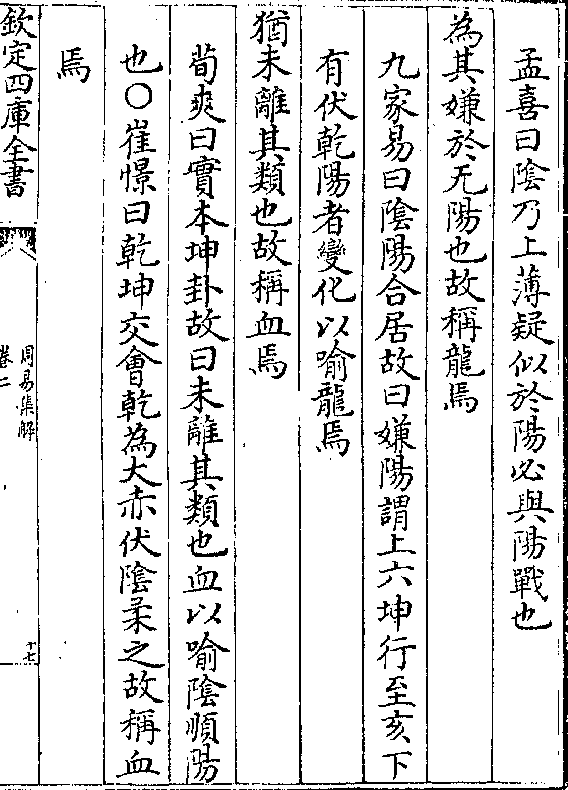 孟喜曰陰乃上薄疑似於陽必與陽戰也
為其嫌於无陽也故稱龍焉
九家易曰陰陽合居故曰嫌陽謂上六坤行至亥下
有伏乾陽者變化以喻龍焉
猶未離其類也故稱血焉
荀爽曰實本坤卦故曰未離其類也血以喻陰順陽
也○崔憬曰乾坤交會乾為大赤伏陰柔之故稱血
焉
欽定四庫全書
周易集解
卷二
十七